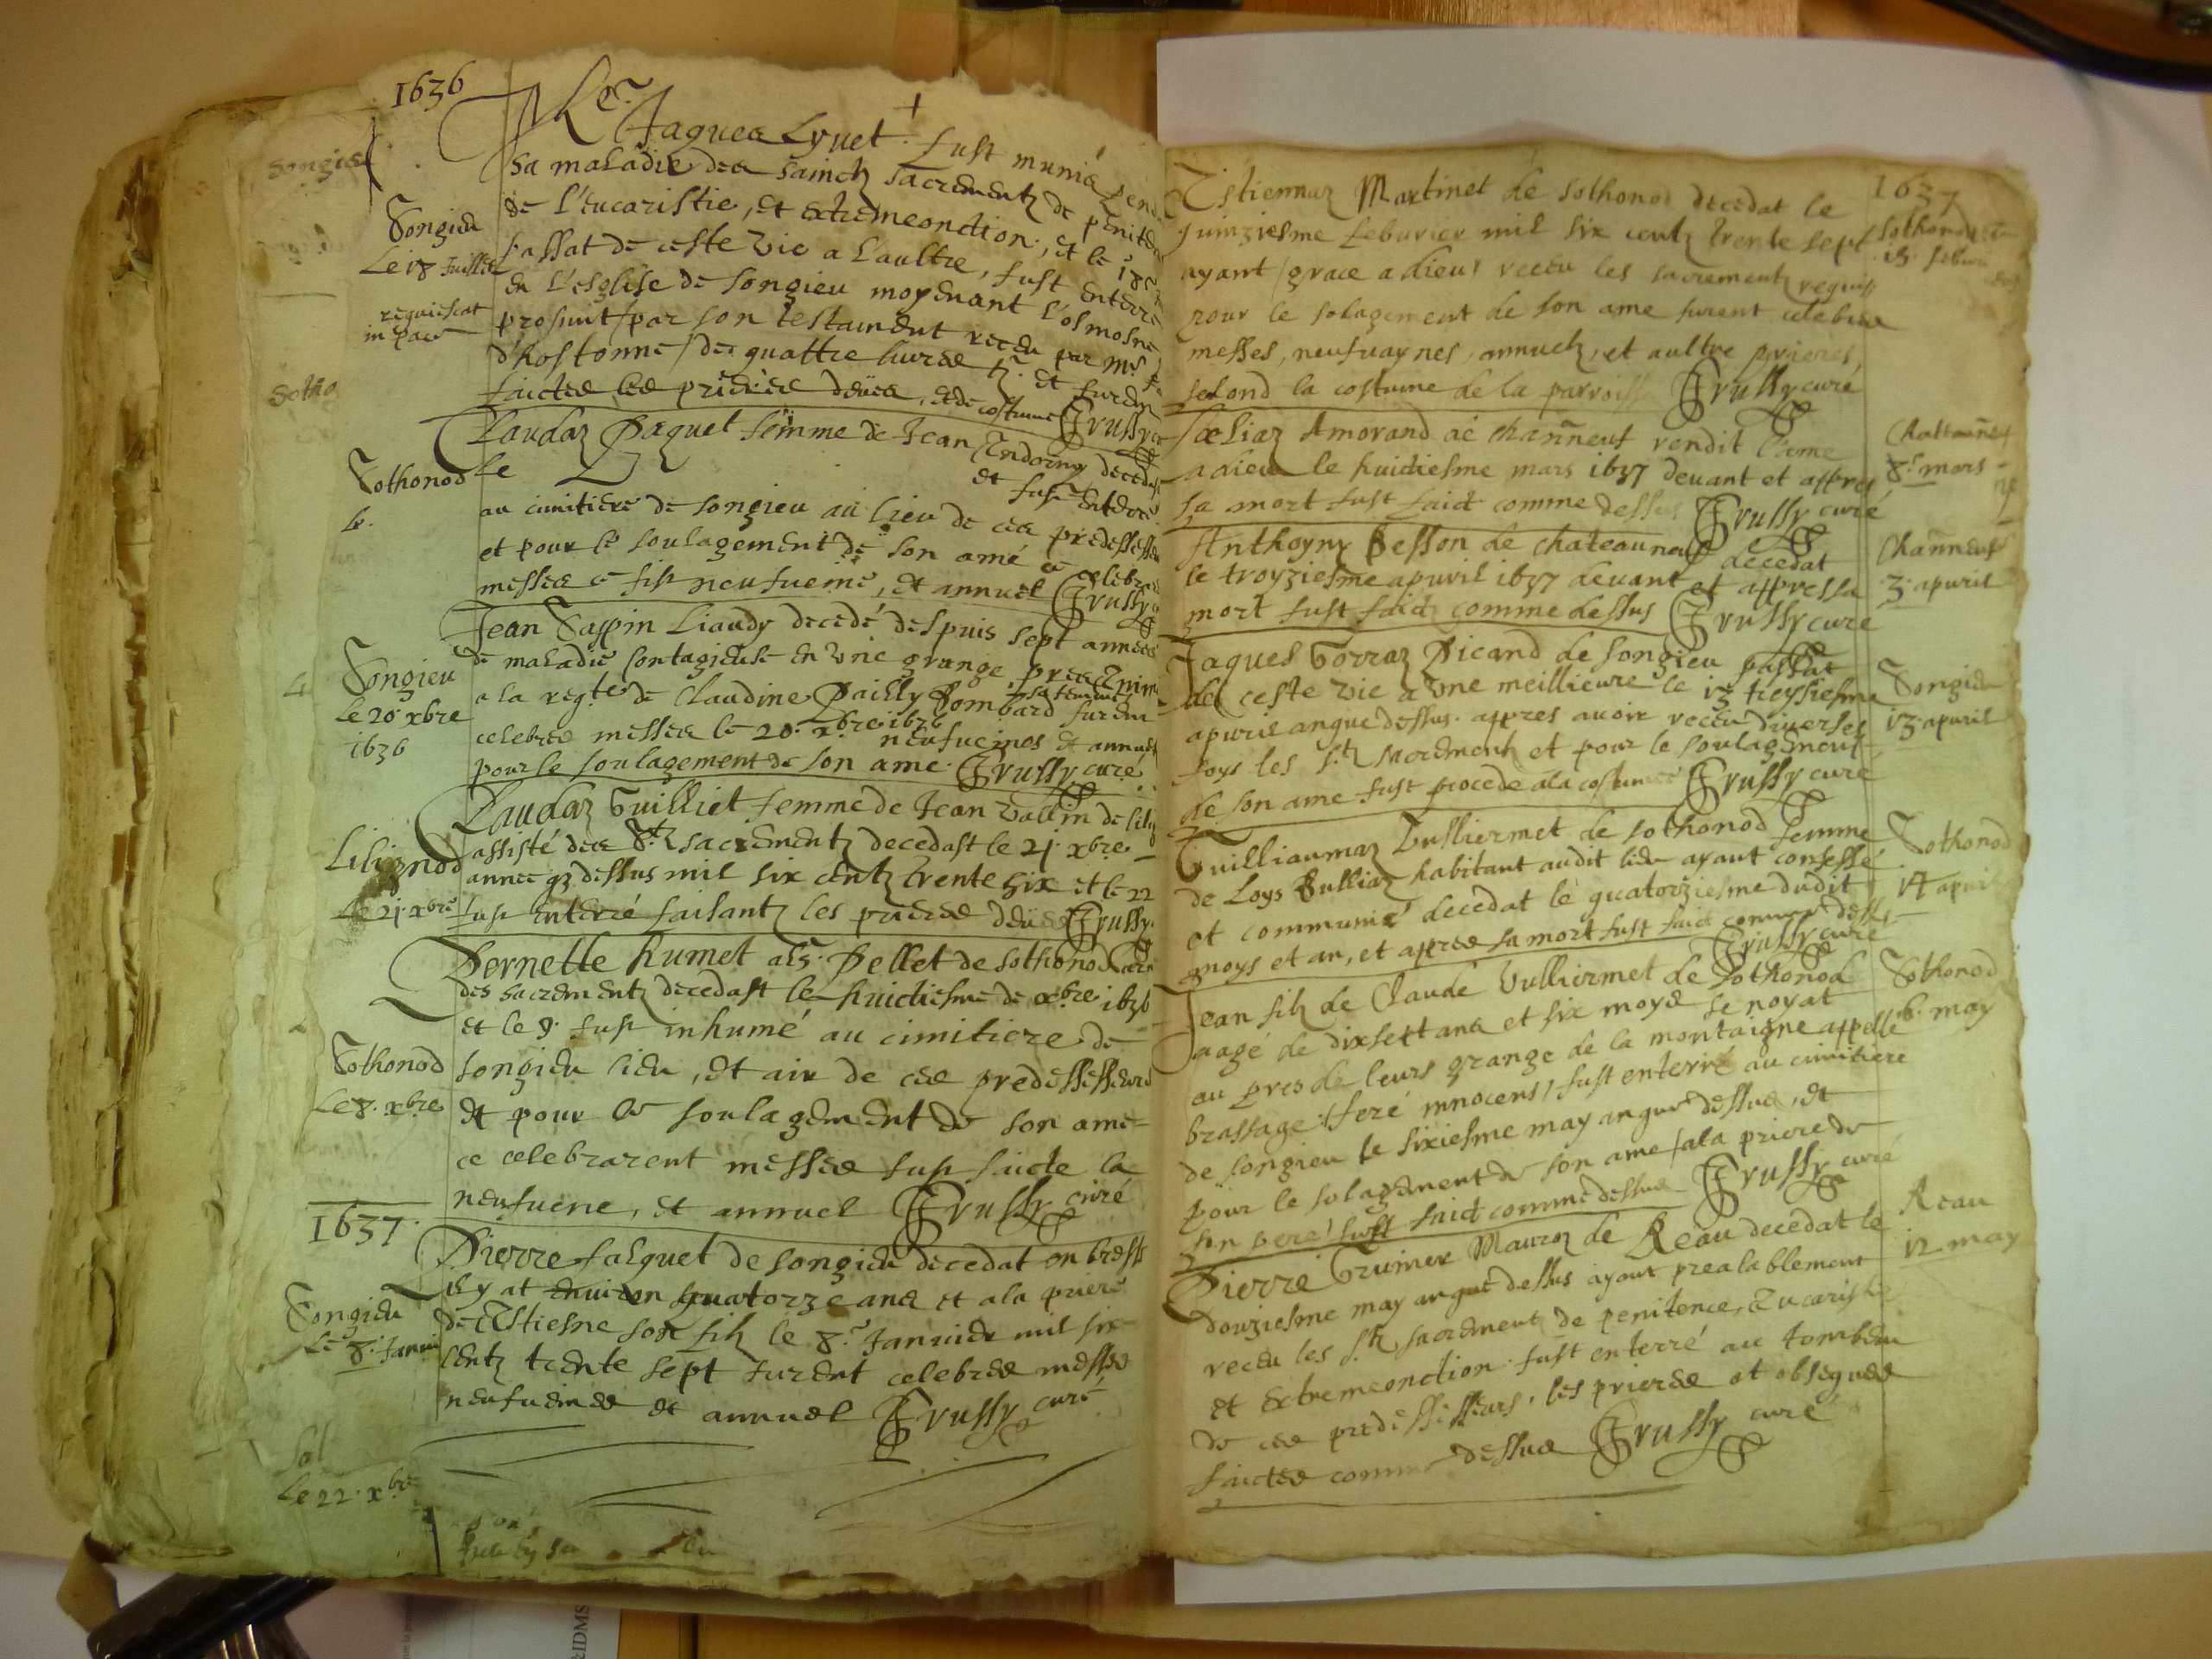 1636
Mre. Jaques Lyuet. fust munis pend
sa maladie des sainctz sacrementz de penitan
Songieu
de l'Eucaristie, et extremeonction, et le 18
Le 18 Juillet
passat de ceste vie a l'aultre, fust enterré
en l'esglise de songieu moyenant l'osmosne
requiescat
in pace
prosunt par son testament receu par Me
d'hostonne des quattre livres tz. et furen
faictes les prieres deües, et de costume Trussy
Claudaz Paquet femme de Jean decedast
Sothonod
le
et fust enterré
au cimitiere de songieu au lieu de ces predessesse
et pour le soulagement de son ame ce celebra
messes e fust neufueine, et annuel Trussy
Jean Sappin Liaudy decedé despuis sept années
de maladie contagieuse en vne grange,
Songieu
a la reqte de Claudine Pailly Bombard furent
Le 20 xbre
celebres messes le 20. xbre 1636 neufueines et annuel
1636
pour le soulagement de son ame. Trussy curé
Claudaz Guilliet femme de Jean Vallin de
Lilignod
assisté des Stz sacrementz decedast le 21. xbre
année q3 dessus mil six centz trente six et le 22
Le 21. xbre
fust enterré faisantz les prieres deües Trussy
Pernette humet als. Pellet de sothonod
des sacrementz decedast le huictiesme de xbre 1636
et le 9. fust inhumé au cimitiere de
Sothonod
songieu lieu, et air de ces predessesseurs
Le 8. xbre
et pour le soulagement de son ame
ce celebrarent messes fust faicte la
neufuene, et annuel Trussy curé
1637.
Pierre falquet de songieu decedat en bresse
il y at environ quatorze ans et a la priere
Songieu
de Estiesne son filz le 8. Januier mil six
Le 8. Januie
centz trente sept furent celebres messes
neufueines et annuel Trussy curé
Le 22. xbre
1637
Estiennaz Martinet de sothonod decedat le
Sothonod
quinziesme feburier mil six centz trente sept
15. febur
ayant grace a dieu receu les sacrementz requis
pour le solagement de son ame furent celebres
messes, neufuaynes, annuelz, et aultre prieres
selond la costume de la parroisse Trussy curé
Cæliaz Amorand de channeuf rendit l'ame
Chattauneuf
a dieu le huictiesme mars 1637 deuant et appres
8e mars
sa mort fust faict comme dessus Trussy curé
Anthoyny Besson de chateauneuf decedat
Channeuf
le troyziesme apuril 1637 deuant et appres sa
3. apuril
mort fust faict comme dessus Trussy curé
Jaques Gorraz Picand de songieu passat
Songieu
de ceste vie a vne meillieure le 13 treysiesme
13. apuril
apuril an que dessus. appres auoir receu diverses
foys les Stz sacrementz et pour le soulagement
de son ame fust procede a la costumee Trussy curé
Guilliaumaz Vulliermet de sothonod femme
Sothonod
de Loys Bulliaz habitant audit lieu ayant confessé
14 apuril
et communié decedat le quatorziesme dudit
moys et an, et appres sa mort fust faict comme dessus
Trussy curé
Jean filz de Claude Vulliermet de Sothonod
Sothonod
aagé de dixsett ans et six moys se noyat
6. may
au pres de leurs grange de la montaigne appellé
brassage feré innocens, fust enterré au cimitiere
de songieu le sixiesme may an que dessus, et
pour le solagement de son ame a la priere de
son pere fust faict comme dessus Trussy curé
Reau
Pierre Truiner Mauroz de Reau decedat le
12 may
douziesme may an que dessus ayant prealablement
receu les Stz sacrement de penitence, Eucaristie
et extremeonction. fust enterré au tombeau
de ces predessesseurs, les prieres et obseques
faictes comme dessus Trussy curé